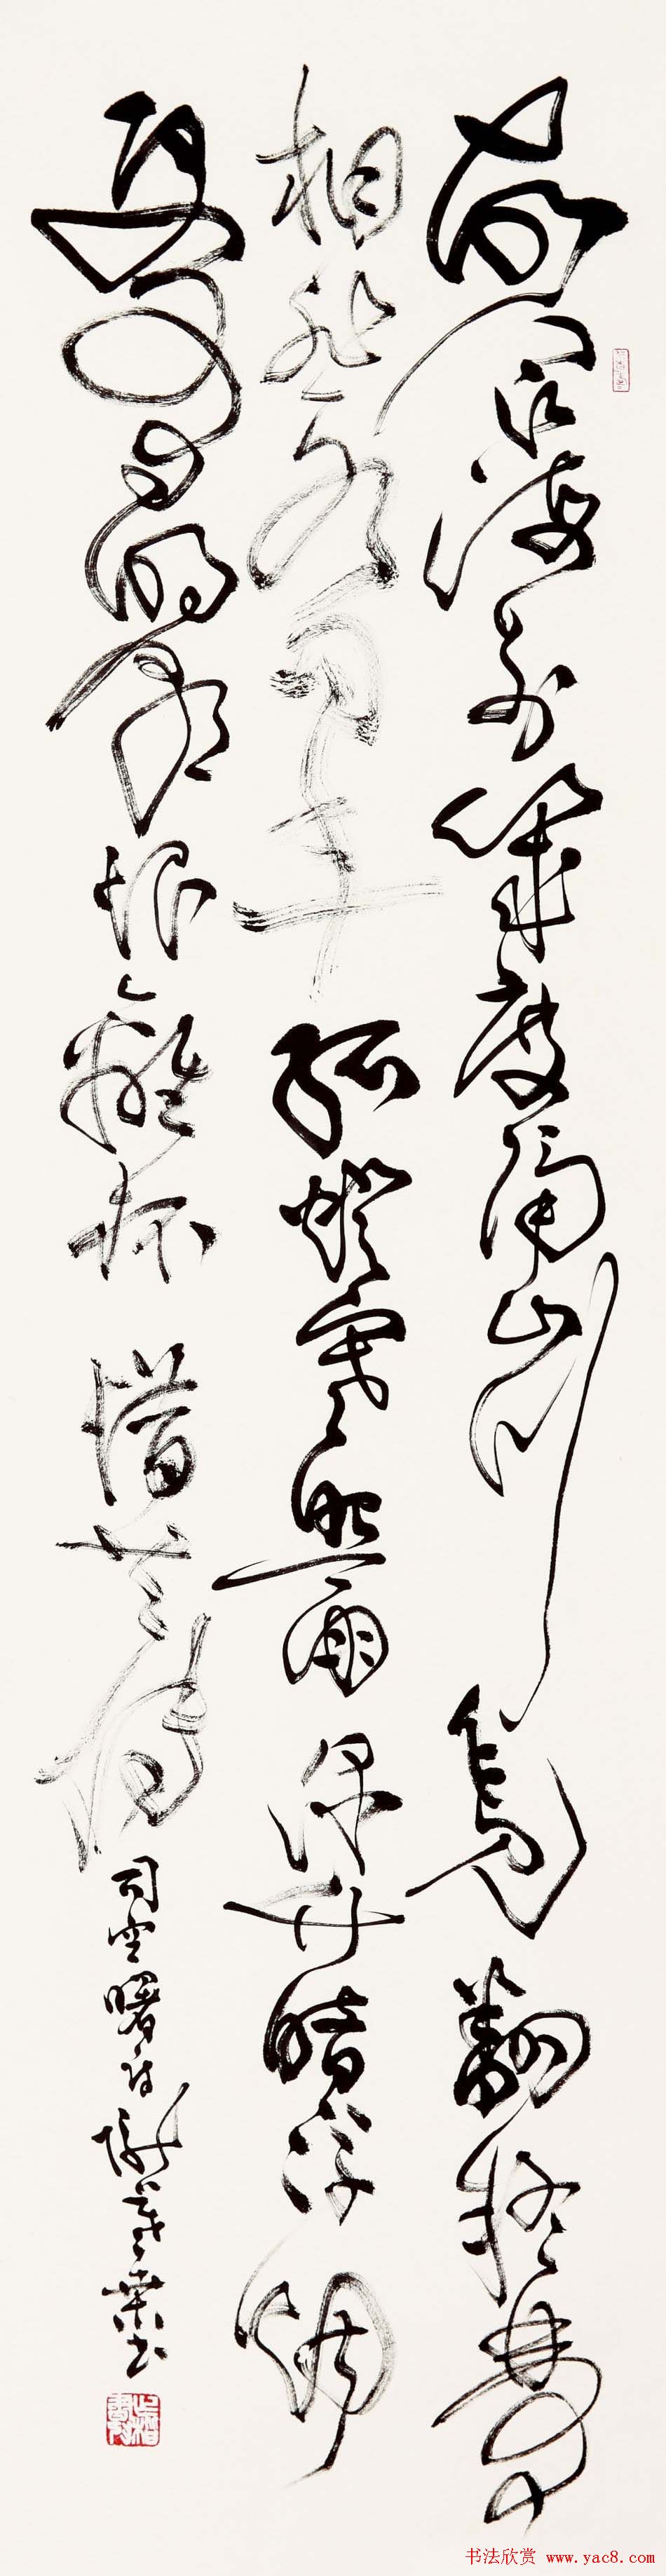 故人江海别几度隔山川乍见翻疑梦
相悲各问年孤灯寒照雨深竹暗浮烟
更有明朝恨离杯惜共传
司空曙诗
书法欣赏 www.yac8.com